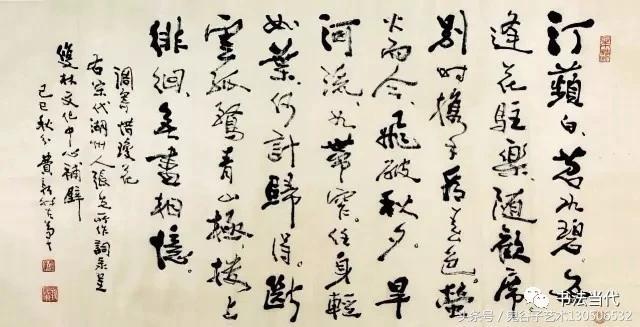 汀蘋白。苕水碧。每
逢花駐樂,隨歡席
別時攜手看春色。螢
火而今,飛破秋夕。旱
河流,如帶窄。任身輕
如葉,何計歸得。斷
雲孤鶩青山極,樓上
徘徊,無盡相憶。
調寄惜瓊花
右宋代湖州人張先所作詞录呈
雙林文化中心補壁
己巳秋分費新我左筆
书法当代
头条号 / 鬼谷子艺术130506532